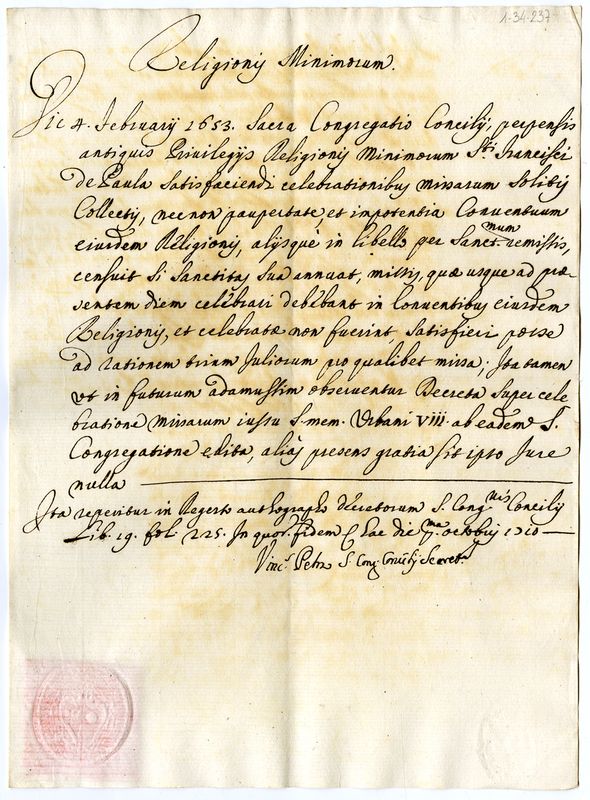 1-34-237
Religionis Minimorum.
Die 4. February 1653. Sacra Congregatio Concilij, perpensis
antiquis Privilegijs Religionis Minimorum Sti. Francisci
de Paula satisfaciendi celebrationibus missarum solitis
Collectis, nec non paupertate et impotentia Conventuum
eiusdem Religionis, alijsque in libello per Sanct.mum remissis,
censuit si Sanctitas sua annuat, missis, quæ usque ad præ-
sentem diem celebrari debebant in Conventibus eiusdem
Religionis, et celebratæ non fuerint, satisfieri posse
ad rationem trium Juliorum pro qualibet missa; Ita tamen
ut in futurum adamussim observentur Decreta super cele
bratione missarum iussu S. mem. Urbani VIII. ab eadem S.
Congregatione edita, alias presens gratia sit ipso Jure
nulla
Ita reperitur in Regesto authographo decretorum S. Cong.nis Concilij
Lib. 19. fol. 225. In quor. fidem hac die 7.ma octobris 1710
Vinc.s Petra S. Cong. Concilij Secret.s